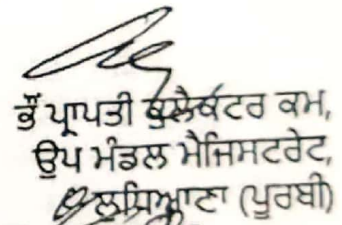 ਭੌਂ ਪ੍ਰਾਪਤੀ ਕੁਲੈਕਟਰ ਕਮ,
ਉਪ ਮੰਡਲ ਮੈਜਿਸਟਰੇਟ,
ਲੁਧਿਆਣਾ (ਪੂਰਬੀ)